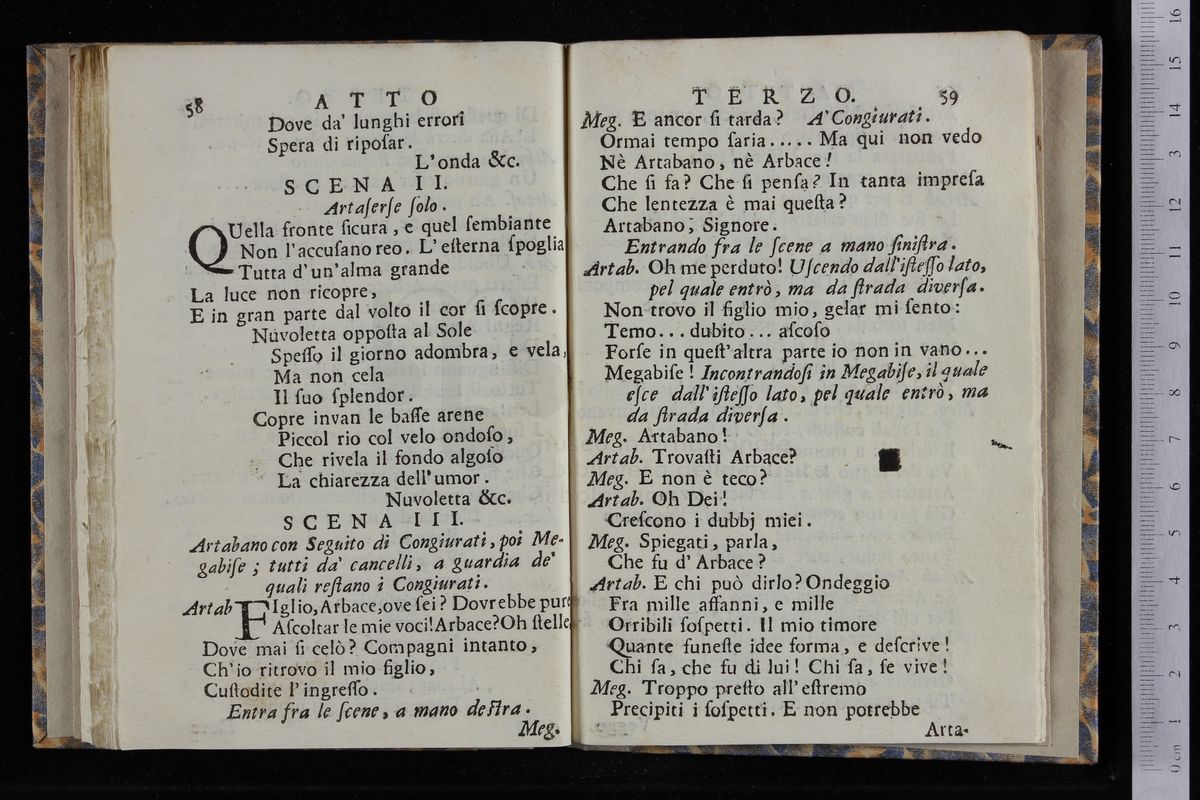 58 ATTO
Dove da' lunghi errori
Spera di ripoſar.
L'onda &c.
SCENA II.
Artaſerſe ſolo.
QUella fronte ſicura, e quel ſembiante
Non l'accuſano reo. L'eſterna ſpoglia
Tutta d'un'alma grande
La luce non ricopre,
E in gran parte dal volto il cor ſi ſcopre.
Nuvoletta oppoſta al Sole
Speſſo il giorno adombra, e vela,
Ma non cela
Il ſuo ſplendor.
Copre invan le baſſe arene
Piccol rio col velo ondoſo,
Che rivela il fondo algoſo
La chiarezza dell'umor.
Nuvoletta &c.
SCENA III.
Artabano con Seguito di Congiurati, poi Me-
gabiſe; tutti da' cancelli, a guardia de'
quali reſtano i Congiurati.
Artab FIglio, Arbace, ove ſei? Dovrebbe pure
Aſcoltar le mie voci! Arbace? Oh ſtelle
Dove mai ſi celò? Compagni intanto,
Ch'io ritrovo il mio figlio,
Cuſtodite l'ingreſſo.
Entra fra le ſcene, a mano deſtra.
Meg.
TERZO. 59
Meg. E ancor ſi tarda? A' Congiurati.
Ormai tempo ſaria..... Ma qui non vedo
Nè Artabano, nè Arbace!
Che ſi fa? Che ſi penſa? In tanta impreſa
Che lentezza è mai queſta?
Artabano, Signore.
Entrando fra le ſcene a mano ſiniſtra.
Artab. Oh me perduto! Uſcendo dall'iſteſſo lato,
pel quale entrò, ma da ſtrada diverſa.
Non trovo il figlio mio, gelar mi ſento:
Temo... dubito... aſcoſo
Forſe in queſt'altra parte io non in vano...
Megabiſe! Incontrandoſi in Megabiſe, il quale
eſce dall'iſteſſo lato, pel quale entrò, ma
da ſtrada diverſa.
Meg. Artabano!
Artab. Trovaſti Arbace?
Meg. E non è teco?
Artab. Oh Dei!
Creſcono i dubbj miei.
Meg. Spiegati, parla,
Che fu d'Arbace?
Artab. E chi può dirlo? Ondeggio
Fra mille affanni, e mille
Orribili ſoſpetti. Il mio timore
Quante funeſte idee forma, e deſcrive!
Chi ſa, che fu di lui! Chi ſa, ſe vive!
Meg. Troppo preſto all'eſtremo
Precipiti i ſoſpetti. E non potrebbe
Arta-
16
15
14
13
12
11
10
9
8
7
6
5
4
3
2
1
0 cm